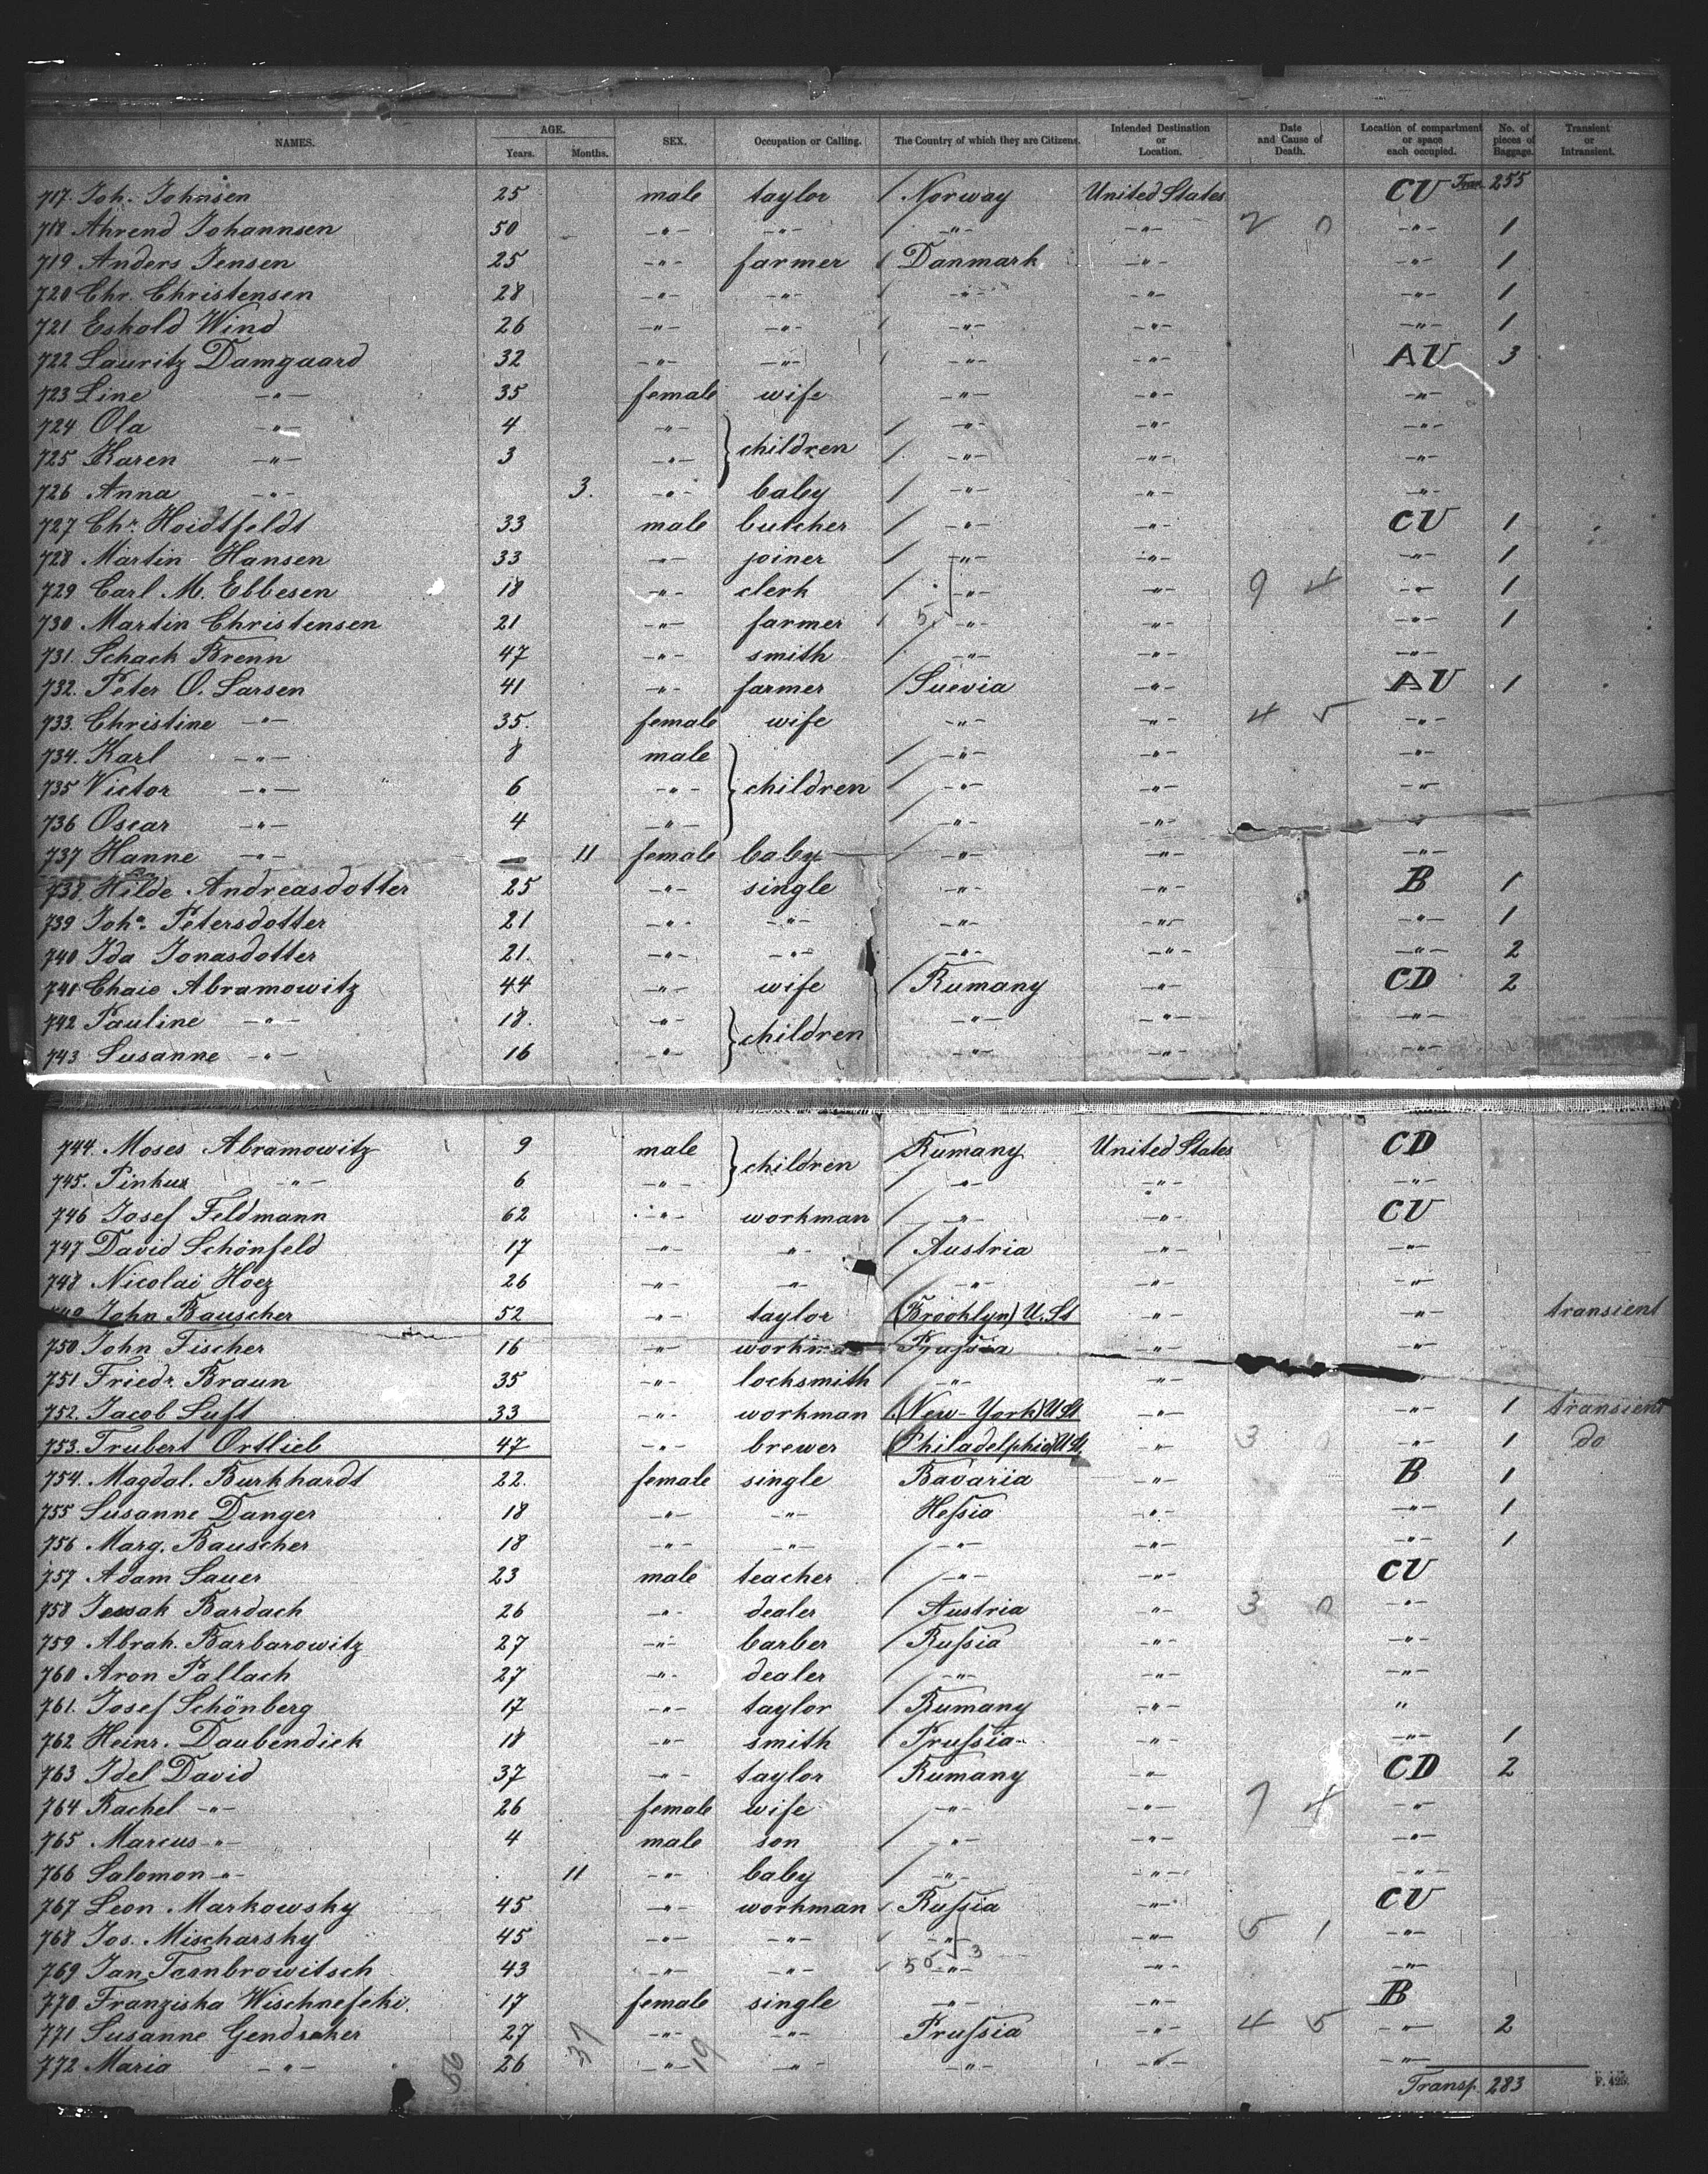 NAMES. AGE. Years. Months. SEX. Occupation or Calling. The Country of which they are Citizens. Intended Destination or Location. Date and Cause of Death. Location of compartment or space each occupied. No. of pieces of Baggage. Transient or Intransient.
717. Joh. Johnsen 25 male taylor Norway United States CU 255
718 Ahrend Johannsen 50 -"- -"- -"- -"- 2 0 -"- 1
719 Anders Jensen 25 -"- farmer Danmark -"- -"- 1
720 Chr. Christensen 28 -"- -"- -"- -"- -"- 1
721 Eskold Wind 26 -"- -"- -"- -"- -"- 1
722 Lauritz Damgaard 32 -"- -"- -"- -"- AU 3
723 Line -"- 35 female wife -"- -"- -"-
724 Ola -"- 4 -"- children -"- -"- -"-
725 Karen -"- 3 -"- -"- -"- -"-
726 Anna -"- 3. -"- baby -"- -"- -"-
727 Chr. Hoidtfeldt 33 male butcher -"- -"- CU 1
728 Martin Hansen 33 -"- joiner -"- -"- -"- 1
729 Carl M. Ebbesen 18 -"- clerk -"- -"- 9 4 -"- 1
730 Martin Christensen 21 -"- farmer 5 -"- -"- -"- 1
731. Schack Brenn 47 -"- smith -"- -"- -"-
732. Peter O. Larsen 41 -"- farmer Suevia -"- AU 1
733. Christine -"- 35. female wife -"- -"- 4 5 -"-
734. Karl -"- 8 male children -"- -"- -"-
735 Victor -"- 6 -"- -"- -"- -"-
736 Oscar -"- 4 -"- -"- -"- -"-
737 Hanne -"- 11 female baby -"- -"- -"-
738. Hilde Andreasdotter 25 -"- single -"- -"- B 1
739 Joha. Petersdotter 21 -"- -"- -"- -"- -"- 1
740 Ida Jonasdotter 21. -"- -"- -"- -"- -"- 2
741 Chaie Abramowitz 44 -"- wife Rumany -"- CD 2
742 Pauline -"- 18. -"- children -"- -"- -"-
743 Susanne -"- 16 -"- -"- -"- -"-
744. Moses Abramowitz 9 male children Rumany United States CD
745. Pinkus -"- 6 -"- -"- -"- -"-
746 Josef Feldmann 62 -"- workman -"- -"- CU
747 David Schönfeld 17 -"- -"- Austria -"- -"-
748 Nicolai Hoez 26 -"- -"- -"- -"- -"-
749 John Bauscher 52 -"- taylor (Brooklyn) U. St -"- -"- transient
750 John Fischer 16 -"- workman Prussia -"- -"-
751 Friedr. Braun 35 -"- locksmith -"- -"-
752. Jacob Luft 33 -"- workman (New-York) U St -"- -"- 1 transient
753. Trubert Ortlieb 47 -"- brewer (Philadelphia) U St. -"- 3 0 -"- 1 do
754. Magdal. Burkhardt 22. female single Bavaria -"- B 1
755 Susanne Danger 18 -"- -"- Hessia -"- -"- 1
756 Marg. Bauscher 18 -"- -"- -"- -"- -"- 1
757 Adam Sauer 23 male teacher -"- -"- CU
758 Bardach 26 -"- dealer Austria -"- 3 0 -"-
759 Abrah. Barbarowitz 27 -"- barber Russia -"- -"-
760 Aron Pallach 27 -"- dealer -"- -"- -"-
761. Josef Schönberg 17 -"- taylor Rumany -"- "
762 Heinr. Daubendiek 18 -"- smith Prussia -"- -"- 1
763 Idel David 37 -"- taylor Rumany -"- CD 2
764 Rachel -"- 26 female wife -"- -"- 7 4 -"-
765 Marcus -"- 4 male son -"- -"- -"-
766 Salomon -"- 11 -"- baby -"- -"- -"-
767 Leon Markowsky 45 -"- workman Russia -"- CU
768 Jos. Mischarsky 45 -"- -"- -"- -"- 5 1 -"-
769 Jan Tarnbrowitsch 43 -"- -"- -"- -"- -"-
770 Franziska 17 female single -"- -"- B
771 Susanne Gendreker 27 -"- -"- Prussia -"- 4 5 -"- 2
772 Maria -"- 26 -"- -"- -"- -"- -"-
56 37 19
Transp. 283